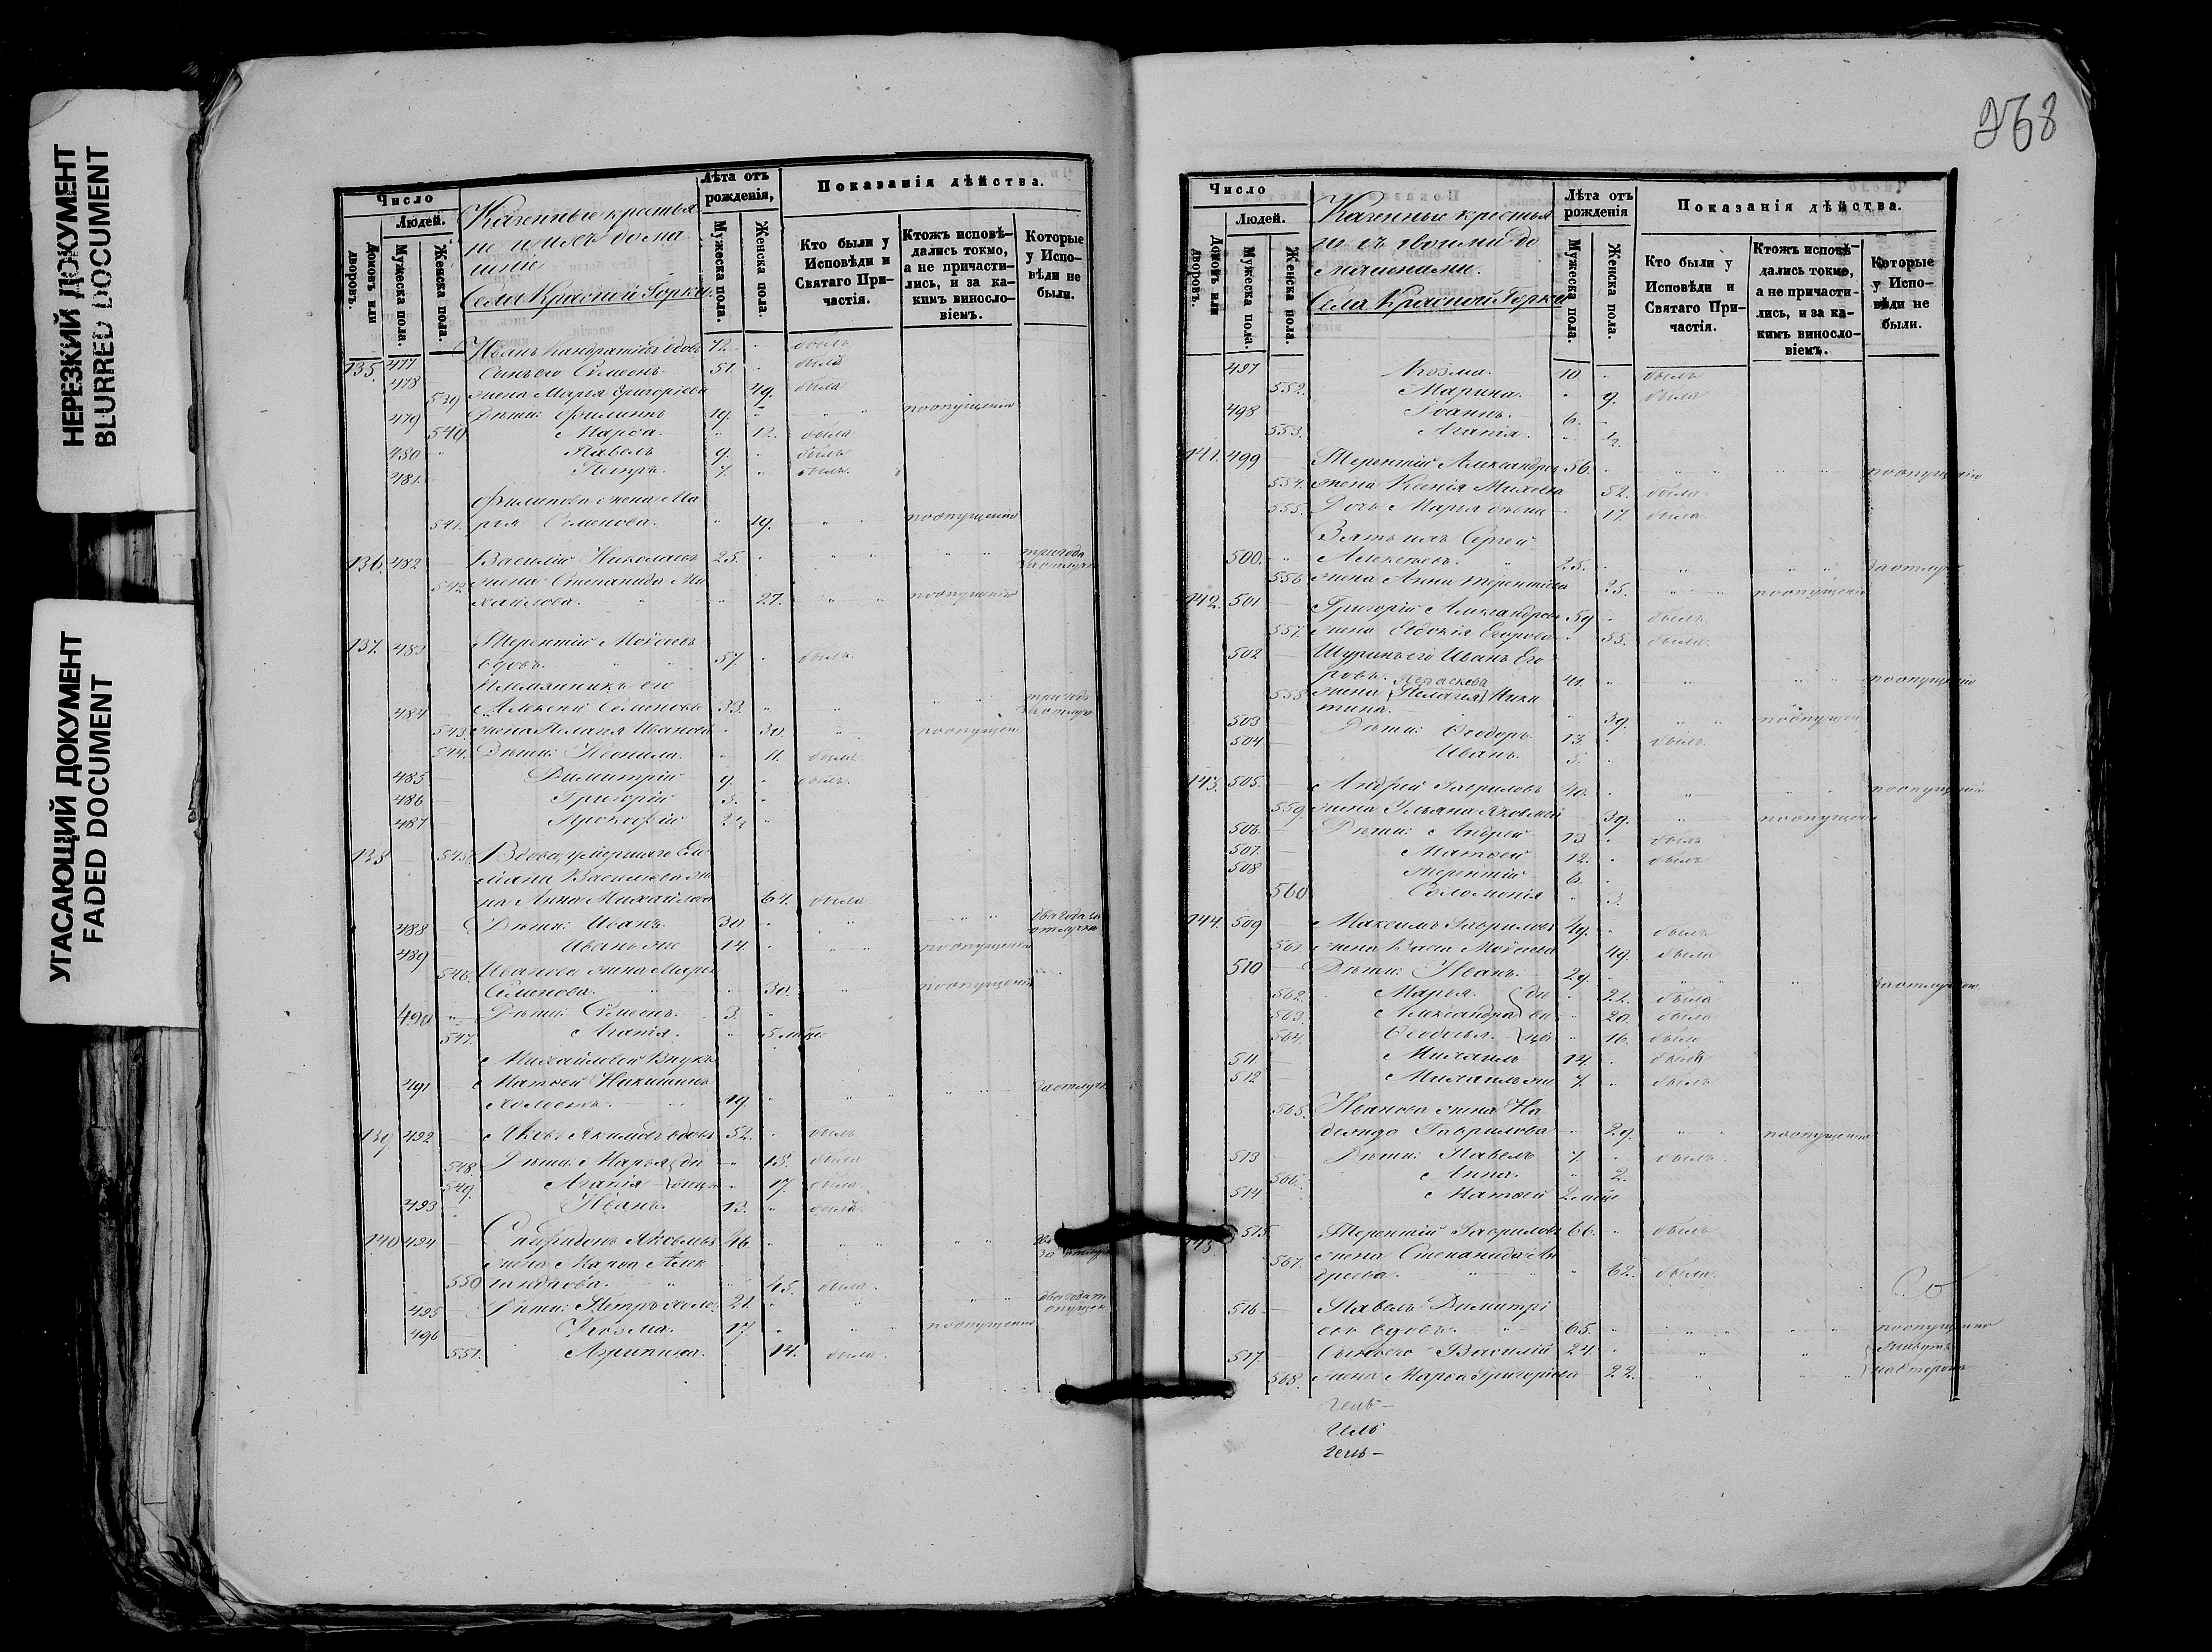 НЕРЕЗКИЙ ДОКУМЕНТ
BLURRED DOCUMENT
УГАСАЮЩИЙ ДОКУМЕНТ
FADED DOCUMENT
Число
Людей.
Домовъ или дворовъ.
Мужеска пола.
Женска пола.
Казенные крестья
не и ихъ дома
шніе
Села Красной Горки.
Лѣта отъ рожденія,
Мужеска пола.
Женска пола.
Показанія дѣйства.
Кто были у Исповѣди и Святаго Причастія.
Ктожъ исповѣдались токмо, а не причастились, и за какимъ винословіемъ.
Которые у Исповѣди не были.
135. 477 Иванъ Кандратьевъ вдовъ 72. былъ
478 Сынъ его Сѵмеонъ 51. былъ
539 жена Марья Григорієва 49. была
479 Дѣти: Филиппъ 19. по опущенію
540 Марѳа. 12. была
480 Павелъ 9. былъ
481. Петръ. 7. былъ.
Филипова жена Ма
541. рья Семенова. 19. по опущенію
136. 482 Василій Николаевъ 25. три года
за отлучк
542 жена Степанида Ми
хайлова. 27. по опущенію
137. 483 Терентій Мойсеевъ
вдовъ. 57. былъ.
Племянникъ его
484 Алексѣй Семеновъ 33. три года
за отлуч
543. жена Пелагія Иванова 30. по опущен
544. Дѣти: Неонила. 11. была.
485 Димитрій 9. былъ.
486 Григорій 5.
487 Прокофій
138 545. Вдова умершаго Ем
ліана Васильева же
на Анна Михайлова 64. была
488 Дѣти: Иванъ. 30. два года за
отлучк
489 Иванъ же 14. по опущенію
546. Иванова жена Марья
Семенова. 30. по опущенію
490 Дѣти: Сѵмеонъ. 3.
547. Агапія. 5 мѣс.
Михайловой внукъ
491 Матѳей Никитинъ за отлучк
холостъ. 19.
139 492 Яковъ Якимовъ вдовъ 52. былъ
548. Дѣти: Марья 18. была
549. Агапія 17. была.
493 Иванъ. 13. былъ.
140 494 Спиридонъ Яковлевъ 46. за отлуч
жена Марѳа Алек
550 сандрова. 45. была.
495 Дѣти: Петръ холо. 21. два года п
опущен
496 Козма. 17. по опущенію
551. Агрипина. 14. была.
368
Число
Людей.
Домовъ или дворовъ.
Мужеска пола.
Женска пола.
Казенные крестья
не съ своими до
машними.
Села Красной Горки
Лѣта отъ рожденія
Мужеска пола.
Женска пола.
Показанія дѣйства.
Кто были у Исповѣди и Святаго Причастія.
Ктожъ исповѣдались токмо, а не причастились, и за какимъ винословіемъ.
Которые у Исповѣди не были.
497 Козма. 10. былъ
552. Марина. 9. была
498 Іоаннъ. 6.
553. Агапія. ½.
141. 499 Терентій Александровъ 56. по опущенію
554. жена Ксенія Михеева 52. была
555. Дочь Марья 17. была
Зять ихъ Сергей
500. Алексѣевъ. 25. за отлуч
556 жена Анна Терентіева 25. по опущенію
142. 501 Григорій Александровъ 59 былъ
557. жена Евдокія Егорова 55. была.
502 Шуринъ его Иванъ Его
ровъ. 41. по опущенію
Параскева
558 жена (Пелагія) Ники
тина. 39. по опущен
503 Дѣти: Ѳеодоръ 13. былъ.
504 Иванъ. 5.
143. 505. Андрей Гавриловъ 40. по опущенію
559. жена Ульяна Яковлева 39. по опущен
506. Дѣти: Андрей 13 былъ
507. Матѳей 12. былъ
508 Терентій 6.
560 Соломонія 3.
144. 509 Максимъ Гавриловъ 49. былъ
561. жена Васса Мойсеева 49. была
510 Дѣти: Иванъ. 29. за отлучкою
562. Марья. 22. была
563. Александра 20. была
564. Ѳеодосья. 16. была
511 Михаилъ 14. былъ
512 Михаилъ же 7. былъ
565. Иванова жена На
дежда Гаврилова 29. по опущенію
513 Дѣти: Павелъ 7. былъ.
566. Анна. 2.
514 Матѳей 2 мѣс
145 515. Терентій Гавриловъ 66. былъ
567. жена Степанида Ан
дреева. 62. была.
516 Павелъ Димитрі
евъ вдовъ. 65. по опущенію
517. Сынъ его Василій 24. живутъ
568. жена Марѳа Григоріева 22. на сторонѣ